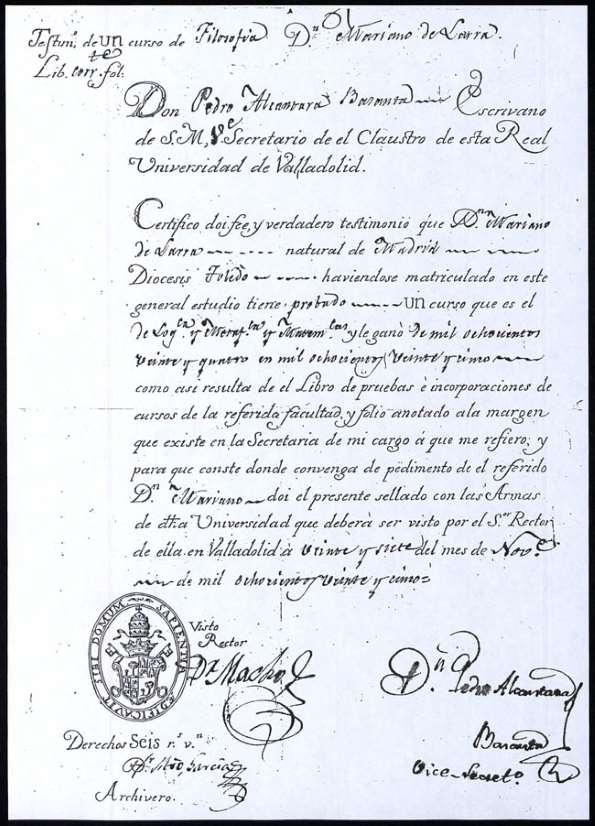 Testim.º de un curso de Filosofia Dⁿ Mariano de Larra.
Lib. corr. fol.
Don Pedro Alcantara Basanta Escrivano
de S.M, Vᵉ Secretario de el Claustro de esta Real
Universidad de Valladolid.
Certifico doi fee, y verdadero testimonio que Dⁿ Mariano
de Larra natural de Madrid
Diocesis Toledo haviendose matriculado en este
general estudio tiene probado un curso que es el
de Logᶜᵃ y Metafᶜᵃ y Matemᶜᵃˢ y le ganó de mil ochocientos
veinte y quatro en mil ochocientos veinte y cinco
como asi resulta de el Libro de pruebas è incorporaciones de
cursos de la referida facultad, y folio anotado ala margen
que existe en la Secretaria de mi cargo à que me refiero; y
para que conste donde convenga de pedimento de el referido
Dⁿ Mariano doi el presente sellado con las Armas
de dha Universidad que deberà ser visto por el Sᵒʳ Rector
de ella. en Valladolid à veinte y siete del mes de Novᵉ
de mil ochocientos veinte y cinco=
SAPIENTIA ÆDIFICAVIT SIBI DOMUM
Visto
Rector
Dʳ Macho
Dⁿ Pedro Alcantara
Basanta
Vice-Secretº
Derechos Seis rˢ vⁿ
Garcia
Archivero.